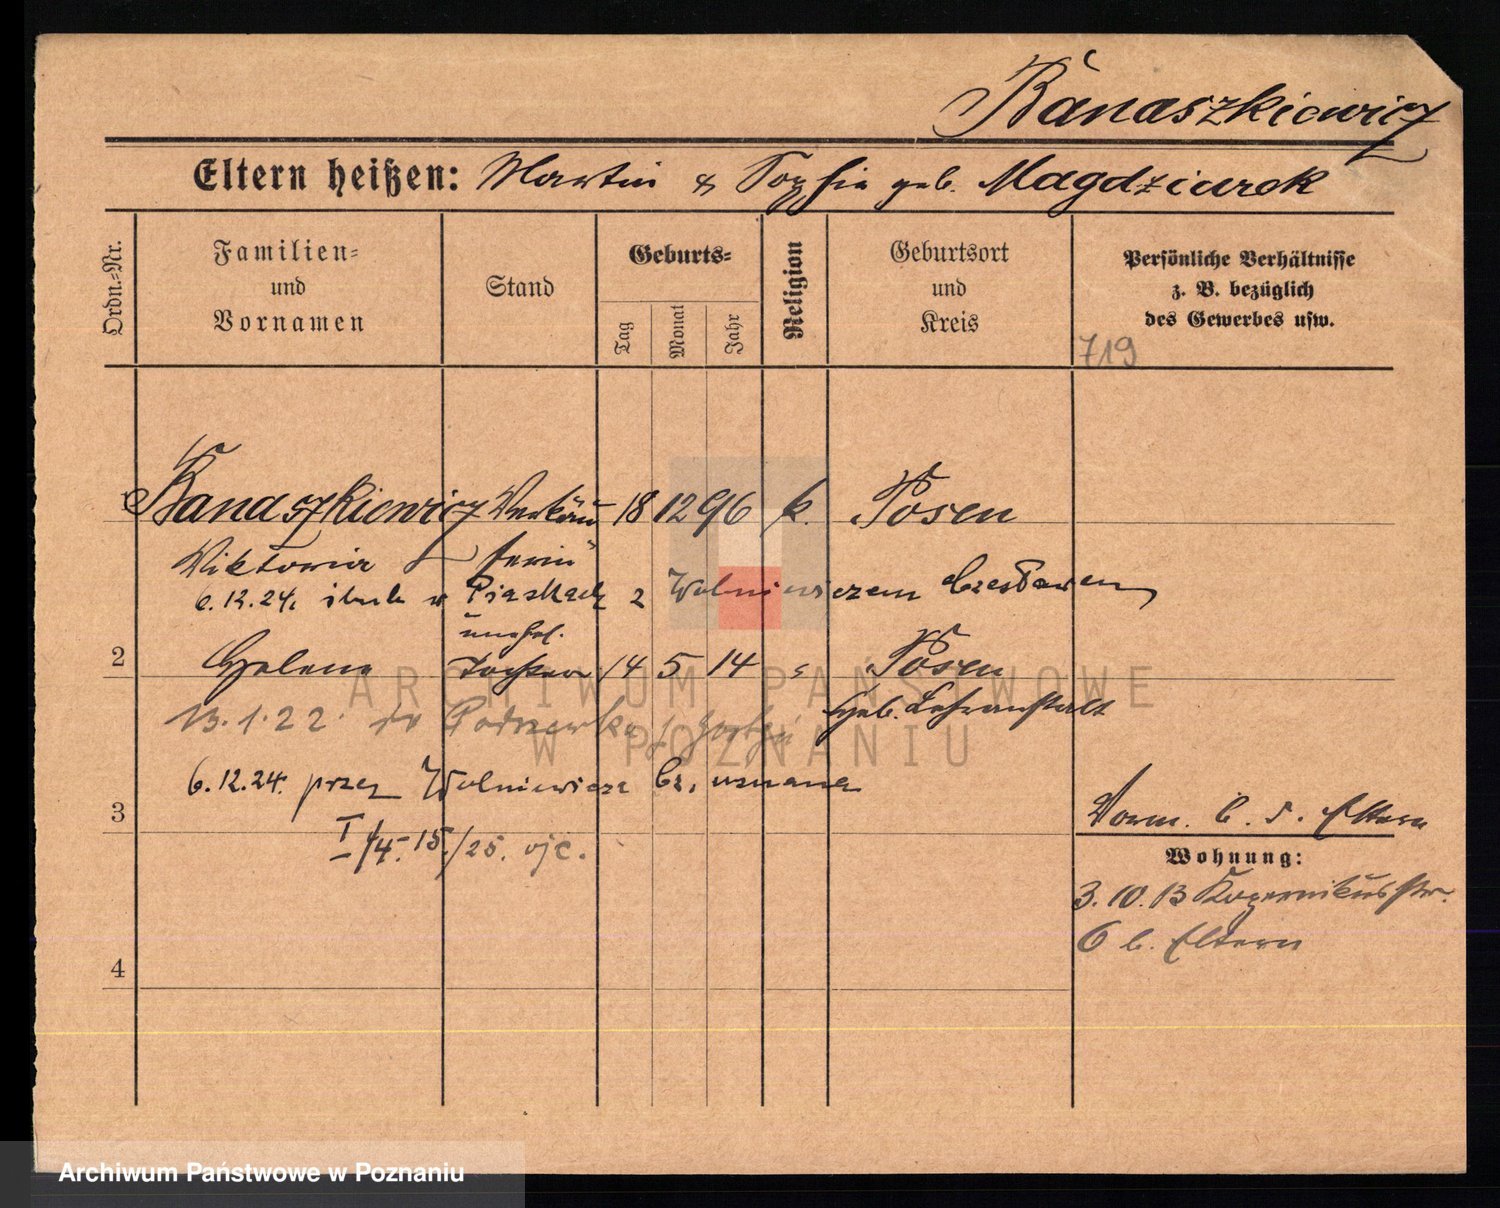 Banaszkiewicz
Eltern heißen: Martin & Sophie geb. Magdziarek
Ordn.-Nr.
Familien-
und
Vornamen
Stand
Geburts-
Tag
Monat
Jahr
Religion
Geburtsort
und
Kreis
Persönliche Verhältnisse
z. B. bezüglich
des Gewerbes usw.
719
1 Banaszkiewicz Verkäu- 18 12 96 k. Posen
Viktoria ferin
6.12.24. ślub w Piaskach z Wolniewiczem Czesławem
unehel.
2 Helene Tochter 14 5 14 " Posen
13.1.22. do Podrzewka Heb. Lehranstalt
6.12.24. przez Wolniewicza Cz. uznana
3
I/4. 15./25. ojc.
Vorm. b. d. Eltern
Wohnung:
3.10.13 Kopernikusstr.
6 b. Eltern
4
ARCHIWUM PAŃSTWOWE
W POZNANIU
Archiwum Państwowe w Poznaniu